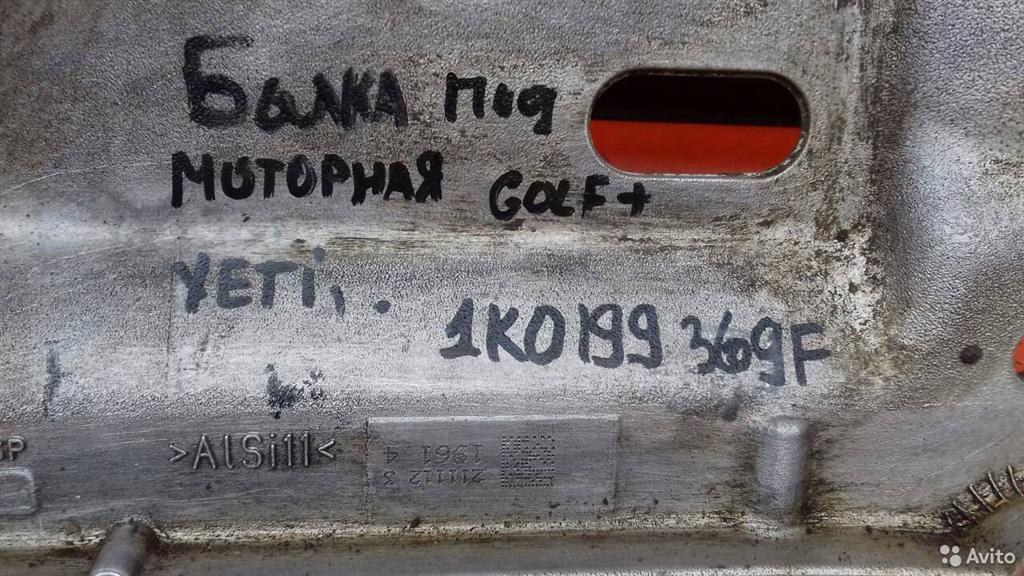 Балка под
МОТОРНАЯ GOLF+
YETi, .
1K0199 369F
>AlSi11<
1961 4
211112 3
Avito